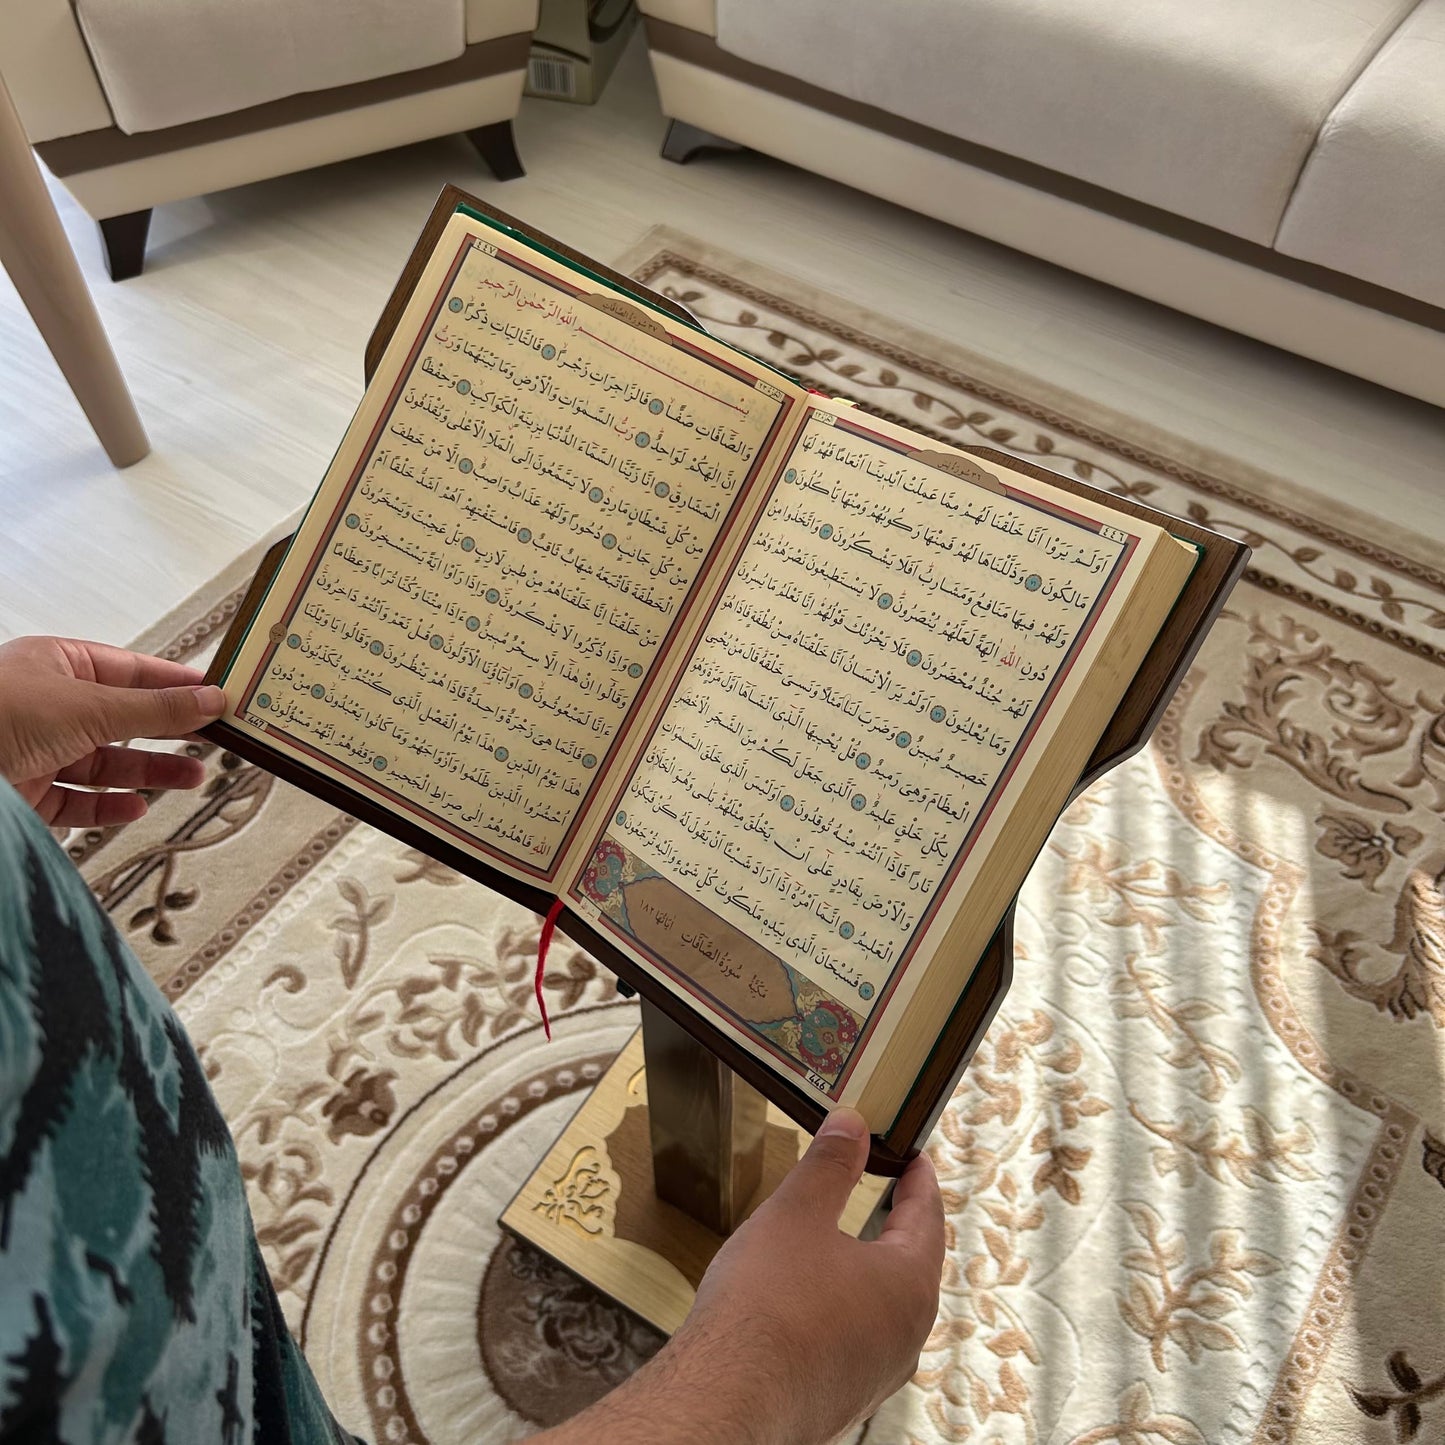 ٤٤٦ ٣٦ سُورَةُ يٰسٓ اَلْجُزْءُ ٢٣
اَوَلَمْ يَرَوْا اَنَّا خَلَقْنَا لَهُمْ مِمَّا عَمِلَتْ اَيْدٖينَٓا اَنْعَامًا فَهُمْ لَهَا
مَالِكُونَ ٧١ وَذَلَّلْنَاهَا لَهُمْ فَمِنْهَا رَكُوبُهُمْ وَمِنْهَا يَأْكُلُونَ ٧٢
وَلَهُمْ فٖيهَا مَنَافِعُ وَمَشَارِبُ اَفَلَا يَشْكُرُونَ ٧٣ وَاتَّخَذُوا مِنْ
دُونِ اللّٰهِ اٰلِهَةً لَعَلَّهُمْ يُنْصَرُونَ ٧٤ لَا يَسْتَطٖيعُونَ نَصْرَهُمْ وَهُمْ
لَهُمْ جُنْدٌ مُحْضَرُونَ ٧٥ فَلَا يَحْزُنْكَ قَوْلُهُمْ اِنَّا نَعْلَمُ مَا يُسِرُّونَ
وَمَا يُعْلِنُونَ ٧٦ اَوَلَمْ يَرَ الْاِنْسَانُ اَنَّا خَلَقْنَاهُ مِنْ نُطْفَةٍ فَاِذَا هُوَ
خَصٖيمٌ مُبٖينٌ ٧٧ وَضَرَبَ لَنَا مَثَلًا وَنَسِيَ خَلْقَهُ قَالَ مَنْ يُحْيِي
الْعِظَامَ وَهِيَ رَمٖيمٌ ٧٨ قُلْ يُحْيٖيهَا الَّذٖٓي اَنْشَاَهَٓا اَوَّلَ مَرَّةٍ وَهُوَ
بِكُلِّ خَلْقٍ عَلٖيمٌ ٧٩ اَلَّذٖي جَعَلَ لَكُمْ مِنَ الشَّجَرِ الْاَخْضَرِ
نَارًا فَاِذَٓا اَنْتُمْ مِنْهُ تُوقِدُونَ ٨٠ اَوَلَيْسَ الَّذٖي خَلَقَ السَّمٰوَاتِ
وَالْاَرْضَ بِقَادِرٍ عَلٰٓى اَنْ يَخْلُقَ مِثْلَهُمْ بَلٰى وَهُوَ الْخَلَّاقُ
الْعَلٖيمُ ٨١ اِنَّمَٓا اَمْرُهُٓ اِذَٓا اَرَادَ شَيْـًٔا اَنْ يَقُولَ لَهُ كُنْ فَيَكُونُ ٨٢
فَسُبْحَانَ الَّذٖي بِيَدِهٖ مَلَكُوتُ كُلِّ شَيْءٍ وَاِلَيْهِ تُرْجَعُونَ ٨٣
مَكِّيَّةٌ سُورَةُ الصَّٓافَّاتِ اٰيَاتُهَا ١٨٢
446
اَلْجُزْءُ ٢٣ ٣٧ سُورَةُ الصَّٓافَّاتِ ٤٤٧
بِسْمِ اللّٰهِ الرَّحْمٰنِ الرَّحٖيمِ
وَالصَّٓافَّاتِ صَفًّا ١ فَالزَّاجِرَاتِ زَجْرًا ٢ فَالتَّالِيَاتِ ذِكْرًا ٣
اِنَّ اِلٰهَكُمْ لَوَاحِدٌ ٤ رَبُّ السَّمٰوَاتِ وَالْاَرْضِ وَمَا بَيْنَهُمَا وَرَبُّ
الْمَشَارِقِ ٥ اِنَّا زَيَّنَّا السَّمَٓاءَ الدُّنْيَا بِزٖينَةٍ الْكَوَاكِبِ ٦ وَحِفْظًا
مِنْ كُلِّ شَيْطَانٍ مَارِدٍ ٧ لَا يَسَّمَّعُونَ اِلَى الْمَلَاِ الْاَعْلٰى وَيُقْذَفُونَ
مِنْ كُلِّ جَانِبٍ ٨ دُحُورًا وَلَهُمْ عَذَابٌ وَاصِبٌ ٩ اِلَّا مَنْ خَطِفَ
الْخَطْفَةَ فَاَتْبَعَهُ شِهَابٌ ثَاقِبٌ ١٠ فَاسْتَفْتِهِمْ اَهُمْ اَشَدُّ خَلْقًا اَمْ
مَنْ خَلَقْنَا اِنَّا خَلَقْنَاهُمْ مِنْ طٖينٍ لَازِبٍ ١١ بَلْ عَجِبْتَ وَيَسْخَرُونَ ١٢
وَاِذَا ذُكِّرُوا لَا يَذْكُرُونَ ١٣ وَاِذَا رَاَوْا اٰيَةً يَسْتَسْخِرُونَ ١٤
وَقَالُٓوا اِنْ هٰذَٓا اِلَّا سِحْرٌ مُبٖينٌ ١٥ ءَاِذَا مِتْنَا وَكُنَّا تُرَابًا وَعِظَامًا
ءَاِنَّا لَمَبْعُوثُونَ ١٦ اَوَاٰبَٓاؤُنَا الْاَوَّلُونَ ١٧ قُلْ نَعَمْ وَاَنْتُمْ دَاخِرُونَ ١٨
فَاِنَّمَا هِيَ زَجْرَةٌ وَاحِدَةٌ فَاِذَا هُمْ يَنْظُرُونَ ١٩ وَقَالُوا يَا وَيْلَنَا
هٰذَا يَوْمُ الدّٖينِ ٢٠ هٰذَا يَوْمُ الْفَصْلِ الَّذٖي كُنْتُمْ بِهٖ تُكَذِّبُونَ ٢١
اُحْشُرُوا الَّذٖينَ ظَلَمُوا وَاَزْوَاجَهُمْ وَمَا كَانُوا يَعْبُدُونَ ٢٢ مِنْ دُونِ
اللّٰهِ فَاهْدُوهُمْ اِلٰى صِرَاطِ الْجَحٖيمِ ٢٣ وَقِفُوهُمْ اِنَّهُمْ مَسْؤُلُونَ ٢٤
447